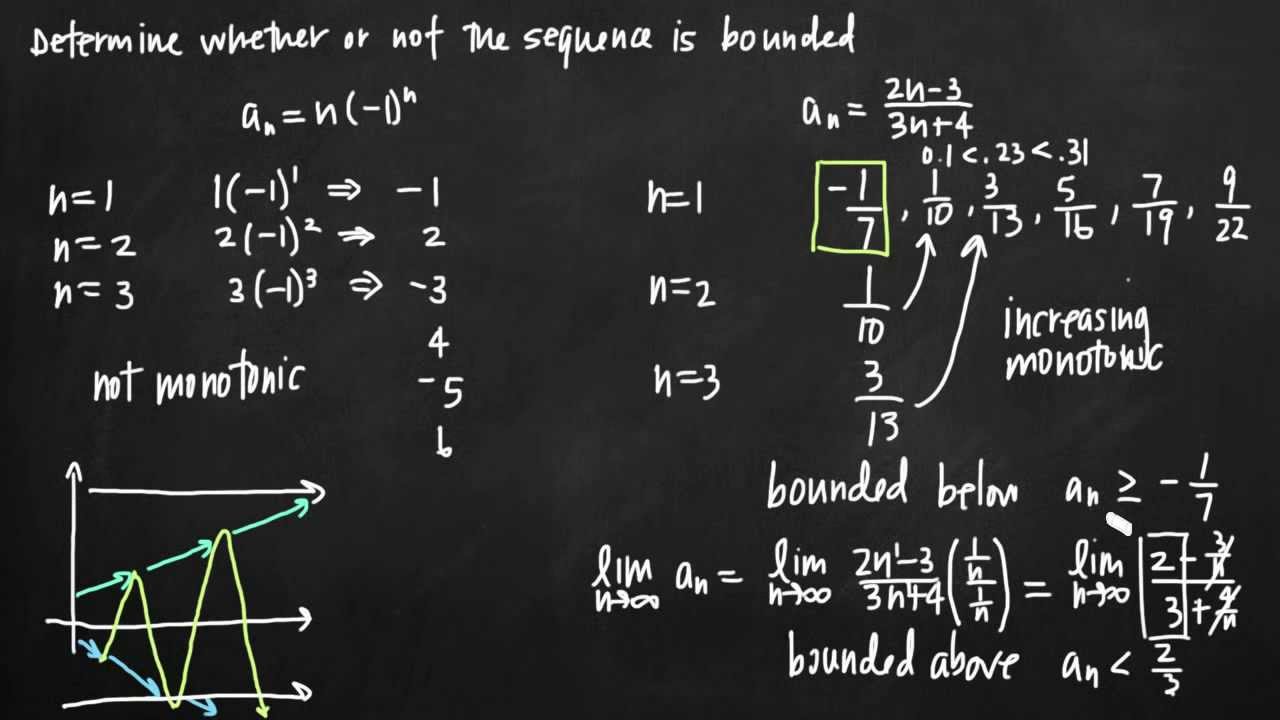 Determine whether or not the sequence is bounded
aₙ = n(-1)ⁿ
n=1 1(-1)¹ ⇒ -1
n=2 2(-1)² ⇒ 2
n=3 3(-1)³ ⇒ -3
4
-5
6
not monotonic
aₙ = (2n-3)/(3n+4)
0.1 < .23 < .31
n=1 -1/7, 1/10, 3/13, 5/16, 7/19, 9/22
n=2 1/10
n=3 3/13
increasing
monotonic
bounded below aₙ ≥ -1/7
lim n→∞ aₙ = lim n→∞ (2n¹-3)/(3n¹+4) ((1/n)/(1/n)) = lim n→∞ (2 - 3/n)/(3 + 4/n)
bounded above aₙ < 2/3